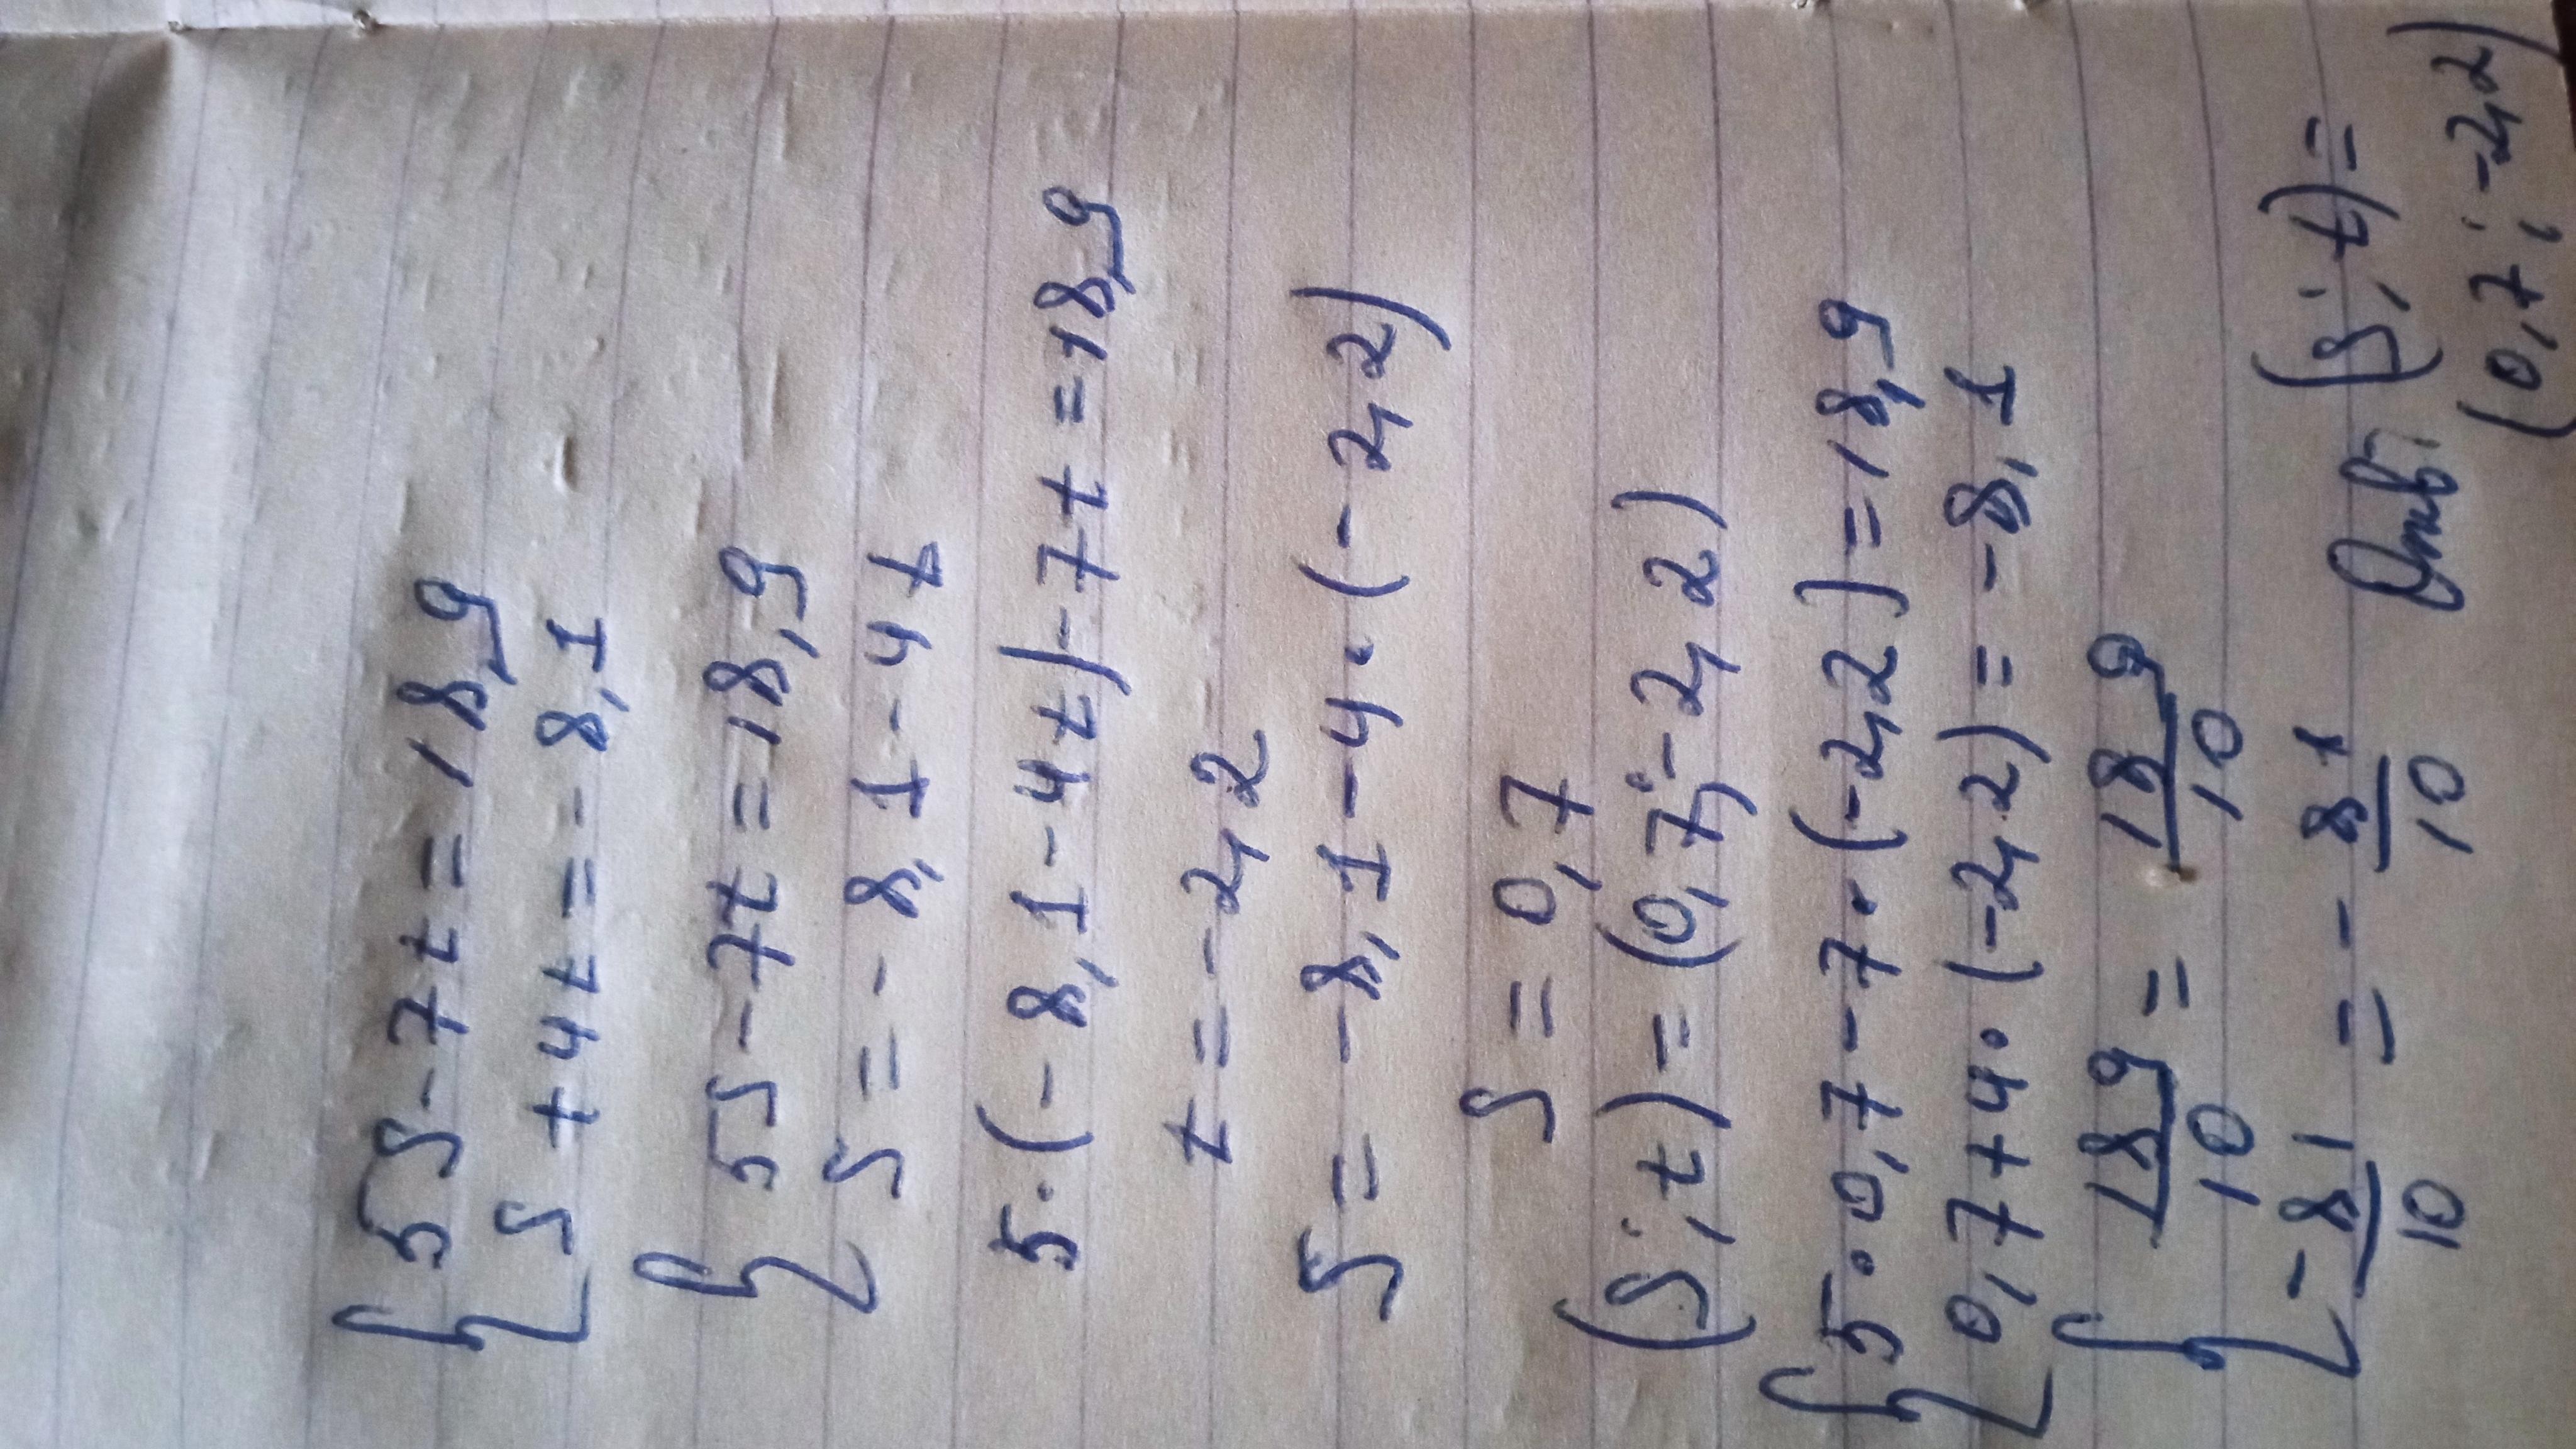 { 5S - 7t = 18,9
S + 4t = - 8,1
{ 5S - 7t = 18,9
S = - 8,1 - 4t
5·(- 8,1 - 4t) - 7t = 18,9
t = - 2,2
S = - 8,1 - 4·(- 2,2)
S = 0,7
(S; t) = (0,7; - 2,2)
{ 5·0,7 - 7·(-2,2) = 18,9
0,7 + 4·(-2,2) = - 8,1
{ 189/10 = 189/10
- 81/10 = - 81/10
Ответ: (S; t) =
(0,7; -2,2)